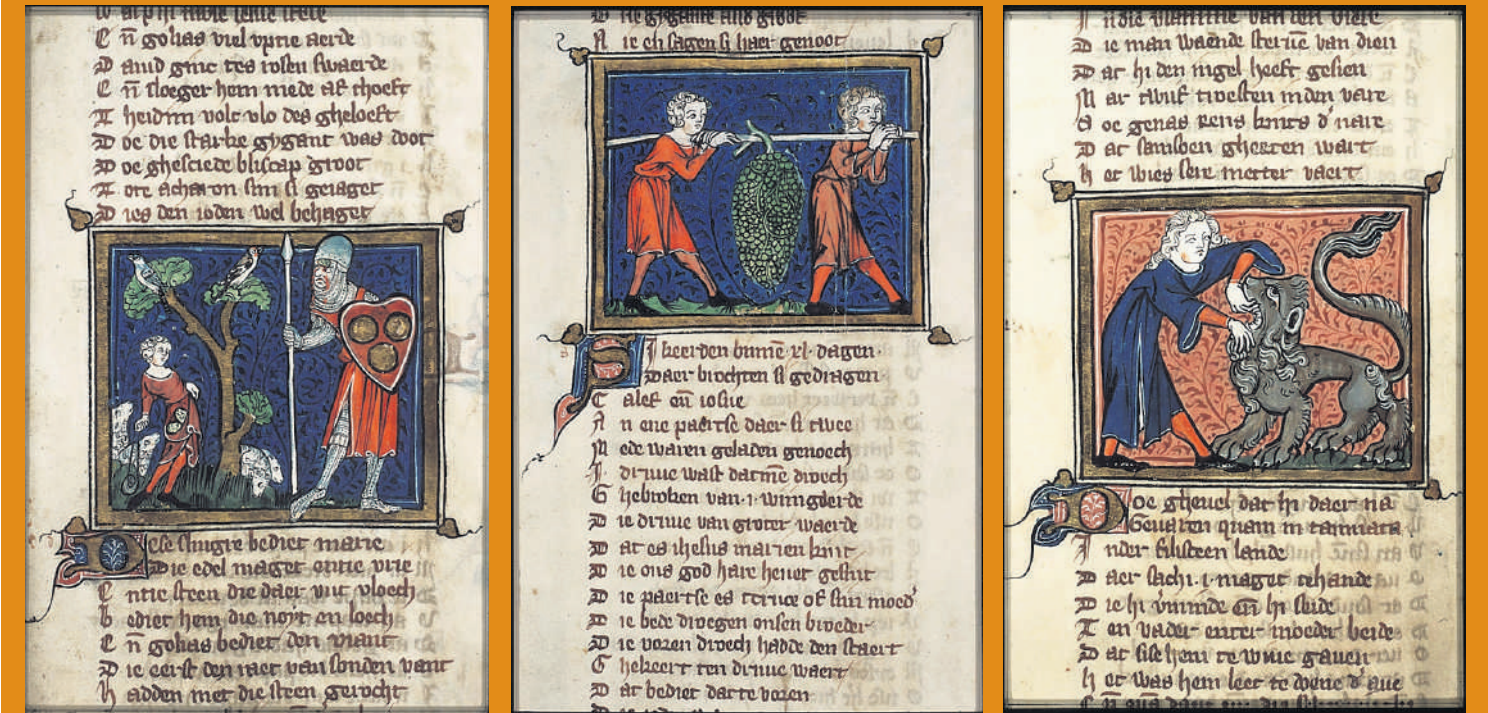 C n̄ golias viel vptie aerde
D auid ginc tes rosen swaerde
C n̄ sloeger hem mede af thoeft
T heidin volc vlo des gheloeft
D oe die starke gygant was doot
D oe ghesciede bliscap groot
D ies den ioden wel behaget
D ese slingre bediet marie
Die edel maget entie vrie
E ntie steen die daer vut vloech
B ediet hem die noyt en loech
E n̄ golias bediet den viant
D ie eerst den raet van sonden vant
H adden met die steen gerocht
D ie gygante also groot
A ie en sagen si haer genoot
Si keerden binnē .xl. dagen.
Daer brochten si gedragen
C alef en̄ iosue
A n ene paertse daer si twee
M ede waren geladen genoech
I. druue wast datmē droech
G hebroken van .i. wijngaerde
D ie druue van groter waerde
D at es ihesus marien kint
D ie ons god hare heuet gesint
D ie paertse es tcruce of sijn moed'
D ie bede droegen onsen broeder
D ie voren droech hadde den staert
G hekeert ten druue waert
D at bediet datte voren
I n die vlamme van den viere
D ie man waende steruē van dien
D at hi den ingel heeft gesien
M ar twijf troesten in den vare
D oe genas kens kints d'nare
D at samsoen gheeten wart
H et wies sere metter vaert
Doe gheuel dat hi daer na
Geuaren quam in tamnata
I nder filisteen lande
D aer sach i .i. maget tehande
D ie hi minde en̄ hi seide
T en vader enter moeder beide
D at sise hem te wiue gauen
H et was hem leet